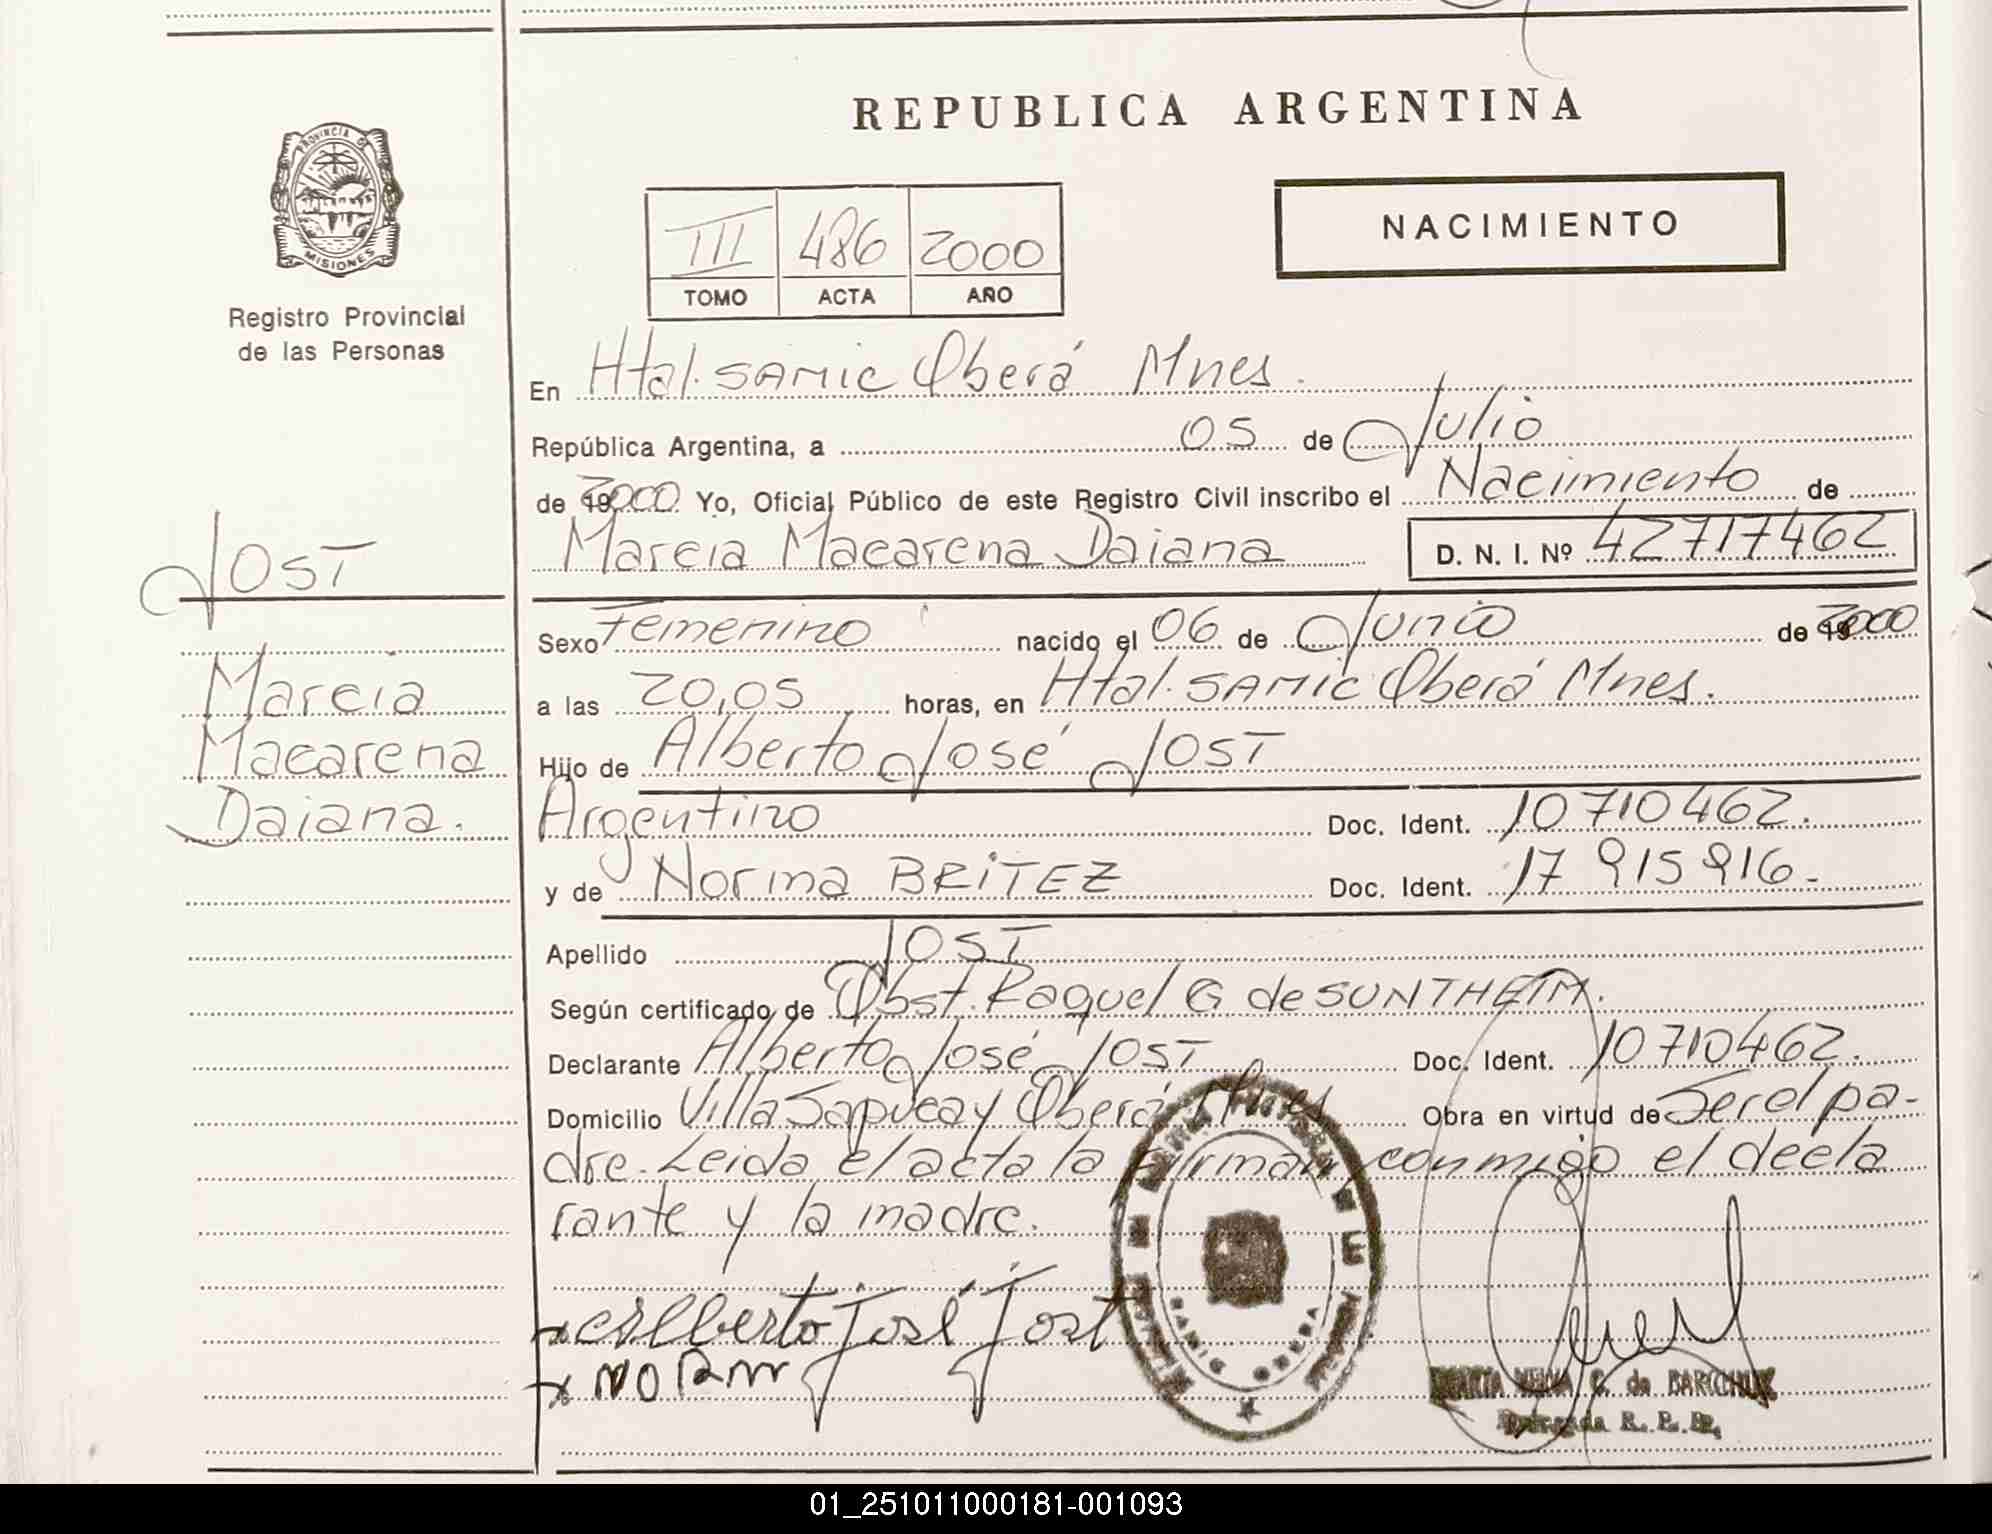 REPUBLICA ARGENTINA
PROVINCIA DE
MISIONES
Registro Provincial
de las Personas
III 486 2000
TOMO ACTA AÑO
NACIMIENTO
En Htal. SAMIC Oberá Mnes.
República Argentina, a 05 de Julio
de 2000 Yo, Oficial Público de este Registro Civil inscribo el Nacimiento de
Marcia Macarena Daiana D. N. I. Nº 42717462
JOST
Marcia
Macarena
Daiana.
Sexo Femenino nacido el 06 de Junio de 2000
a las 20,05 horas, en Htal. SAMIC Oberá Mnes.
Hijo de Alberto José JOST
Argentino Doc. Ident. 10710462.
y de Norma BRITEZ Doc. Ident. 17 915 916.
Apellido JOST
Según certificado de Obst. Raquel G de SUNTHEIM.
Declarante Alberto José JOST Doc. Ident. 10710462.
Domicilio Villa Sapucay Oberá Mnes Obra en virtud de Ser el pa-
dre. Leida el acta la firman conmigo el decla
rante y la madre.
x Alberto José Jost
x NORM
OBERA
C. de
Delegada R. P. P.
01_251011000181-001093